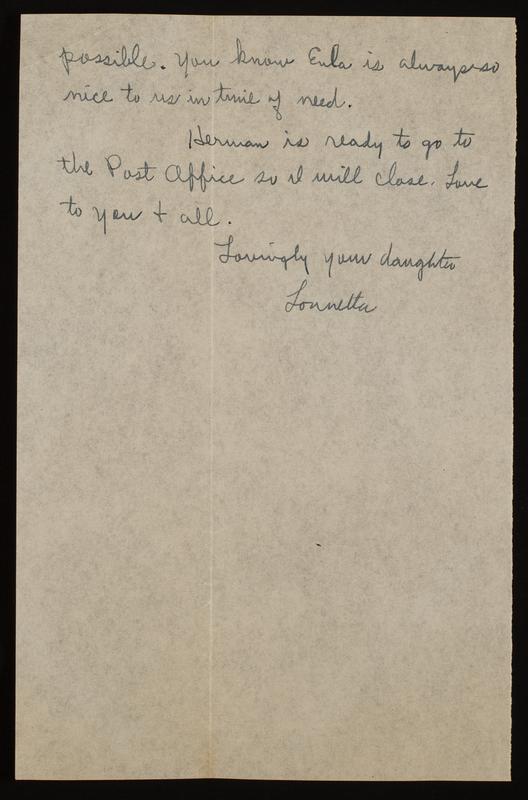 possible. You know Eula is always so
nice to us in time of need.
Herman is ready to go to
the Post Office so I will close. Love
to you + all.
Lovingly your daughter
Lonnetta